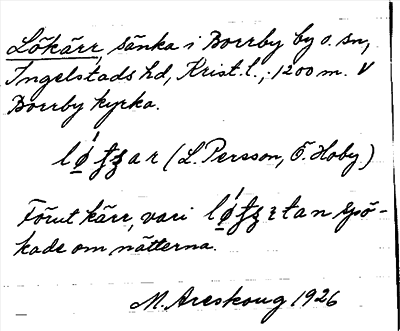 Lökärr, sänka i Borrby by o. sn,
Ingelstads hd, Krist. l., 1200 m. V
Borrby kyrka.
(L. Persson, Ö. Hoby.)
Förut kärr, vari spö-
kade om nätterna.
M. Areskoug 1926